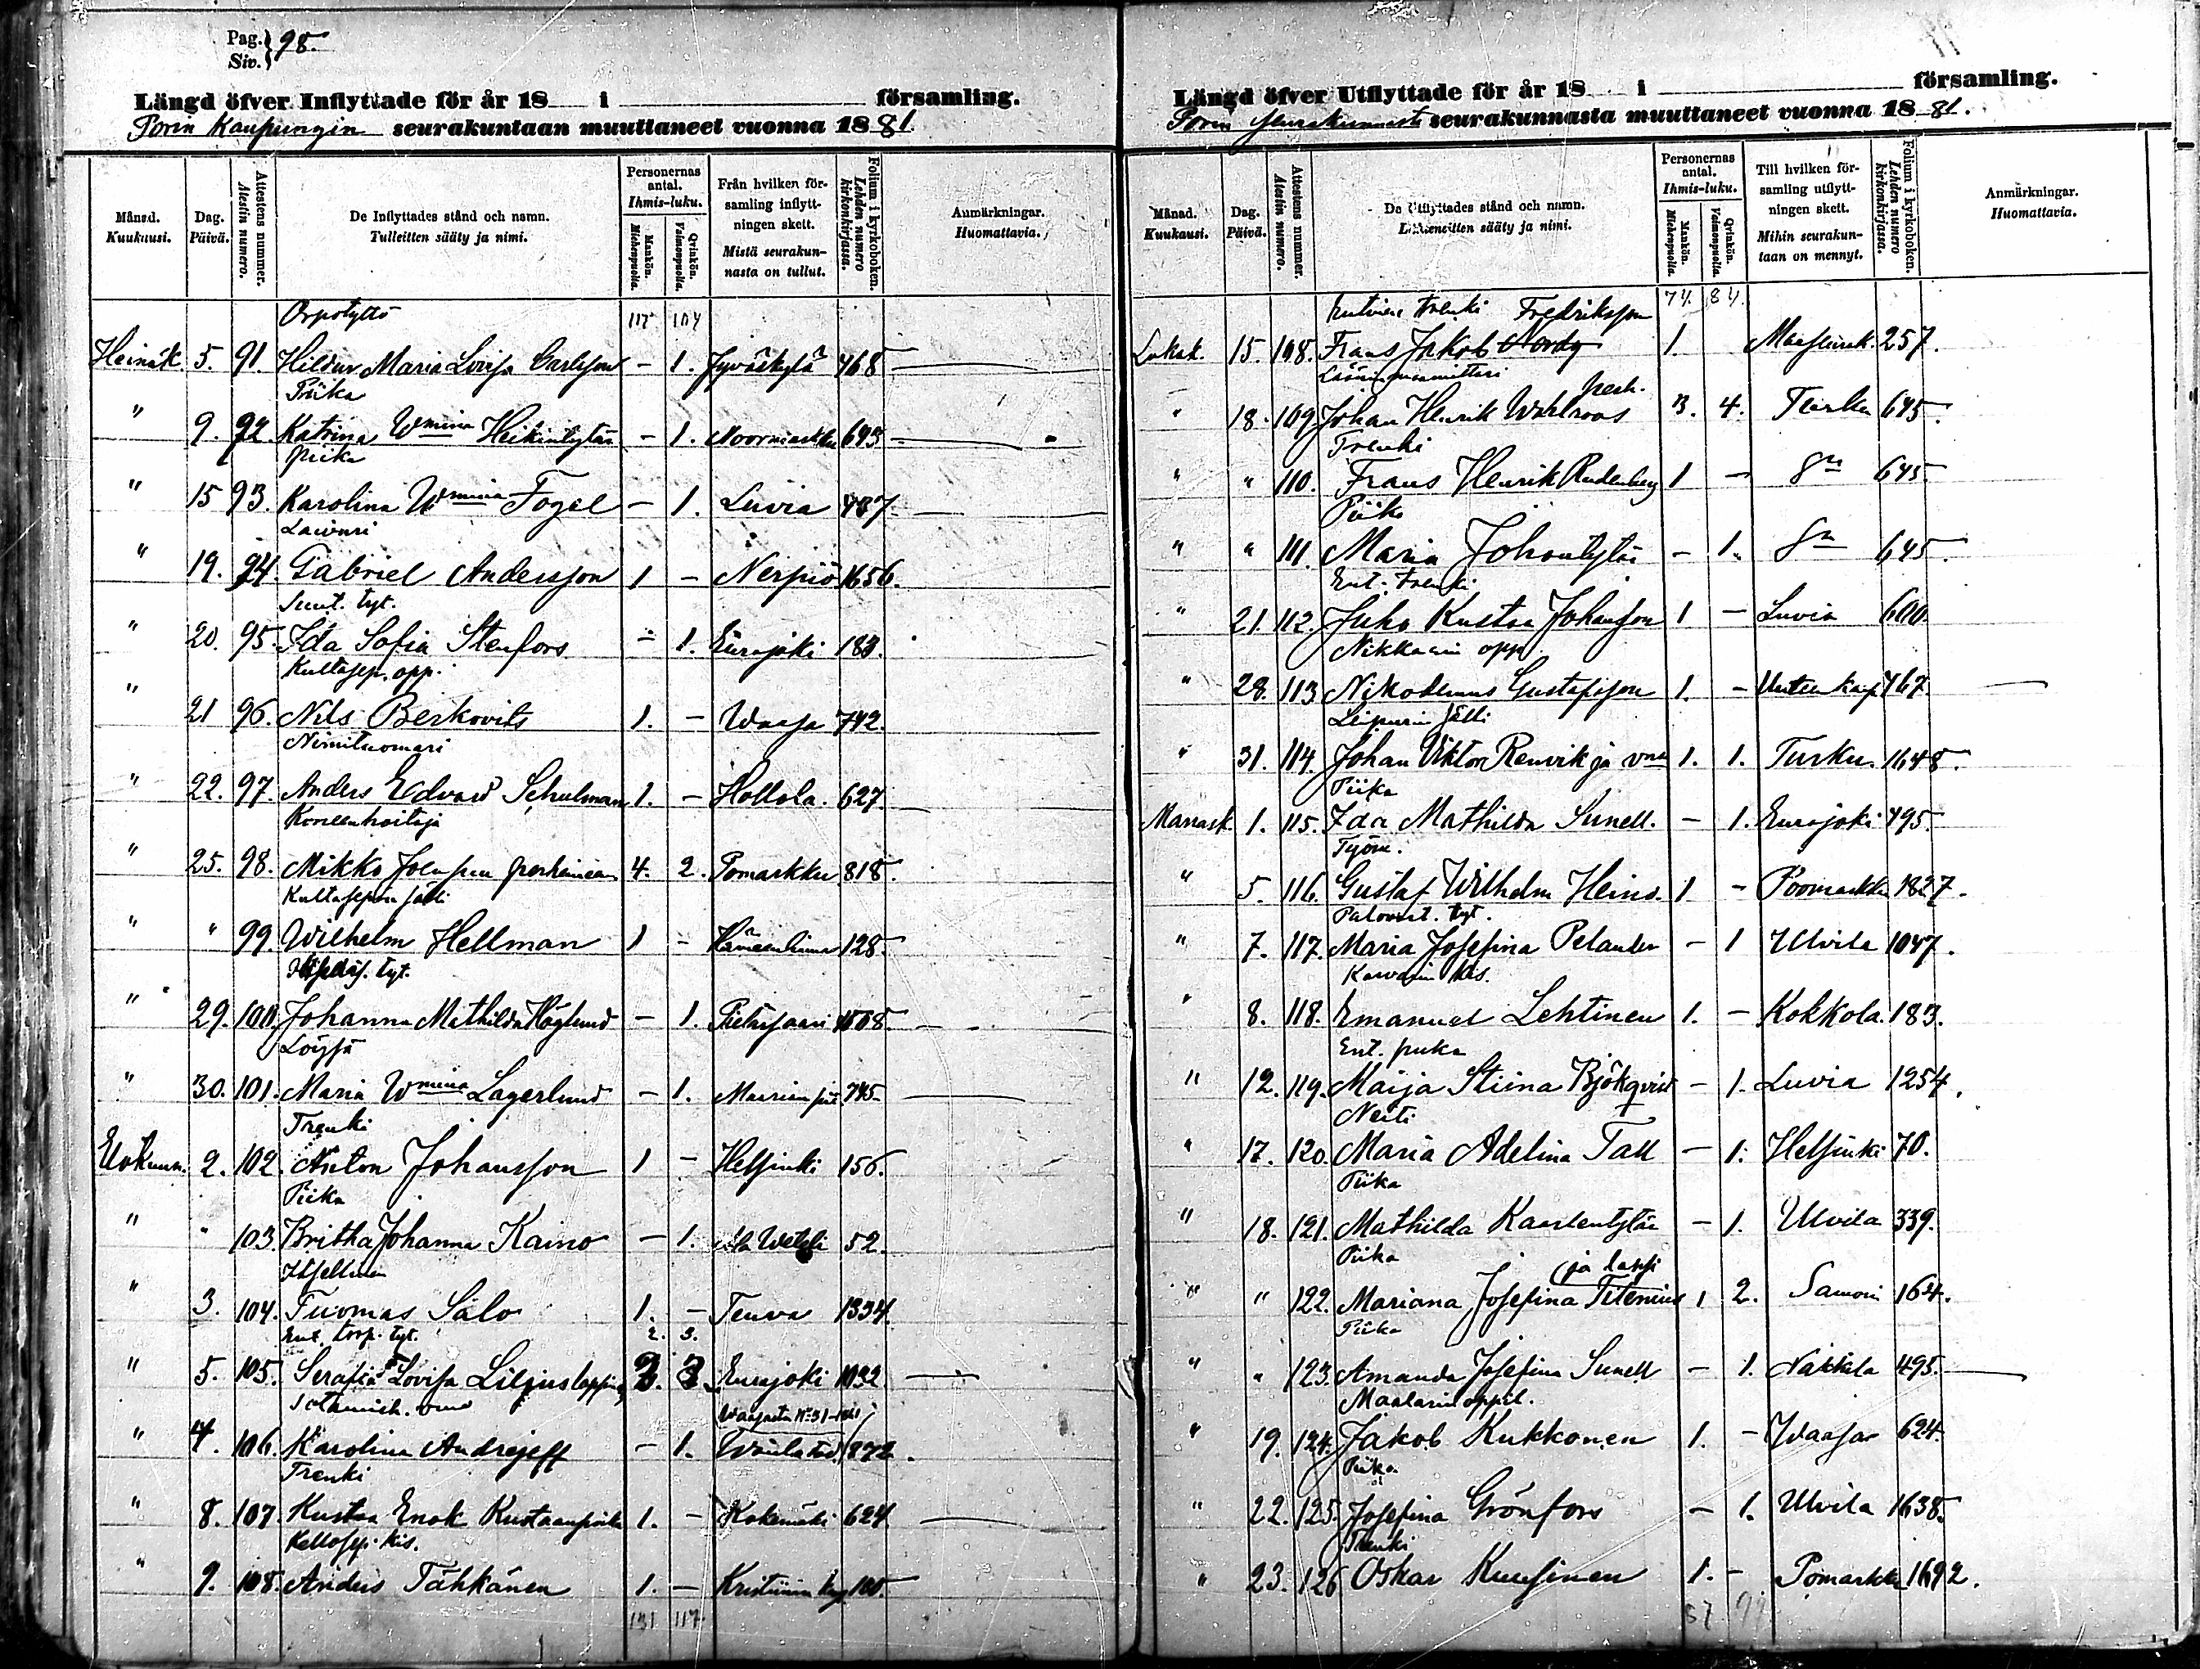 Pag. Siv. } 98.
Längd öfver Inflyttade för år 18 i församling.
Porin Kaupungin seurakuntaan muuttaneet vuonna 1881.
Månad. Kuukausi.
Dag. Päivä.
Attestens nummer. Atestin numero.
De Inflyttades stånd och namn. Tulleitten sääty ja nimi.
Personernas antal. Ihmis-luku.
Mankön. Miehenpuolta.
Qvinkön. Vaimonpuolta.
Från hvilken församling inflyttningen skett. Mistä seurakunnasta on tullut.
Folium i kyrkoboken. Lehden numero kirkonkirjassa.
Anmärkningar. Huomattavia.
Orpotyttö 117 104
Heinäk. 5. 91. Hildur Maria Lovisa Carlsson – 1. Jyväskylä 468
Piika
" 9. 92. Katrina Wmina Heikintytär – 1. Noormarkku 693
Piika
" 15 93. Karolina Wmina Fogel – 1. Luvia 487
Laivuri
" 19. 94. Gabriel Andersson 1 – Nerpiö 1656.
Suut. tyt.
" 20. 95. Ida Sofia Stenfors – 1. Eurajoki 183.
Kultasep. opp.
" 21 96. Nils Berkovits 1. – Waasa 742.
Nimituomari
" 22. 97. Anders Edvard Schulman 1. – Hollola. 627.
Koneenhoitaja
" 25. 98. Mikko perheineen 4. 2. Pomarkku 818.
Kultasepän sälli
" " 99. Wilhelm Hellman 1 – Hämeenlinna 128.
tyt.
" 29. 100. Johanna Mathilda Höglund – 1. Pietarsaari 1508.
Loysjä
" 30. 101. Maria Wmina Lagerlund – 1. 745.
Trenki
Elokuun. 2. 102. Anton Johansson 1 – Helsinki 156.
Piika
" " 103. Britha Johanna Kaino – 1. Weteli 52.
Itsellinen
" 3. 104. Tuomas Salo 1. – Teuva 1334.
Ent. torp. tyt. 2. 3.
" 5. 105. Serafia Lovisa Liljus lapsin. 2. 3 Eurajoki 1032
Sotamieh. vmo
" 4. 106. Karolina Andrejeff – 1. 872.
Trenki
" 8. 107 Kustaa Enok Kustaanpoika 1. – Kokemäki 624
Kellosep. kis.
" 9. 108. Anders Tähkänen 1. – 100.
131 117.
Längd öfver Utflyttade för år 18 i församling.
Porin seurakunnasta seurakunnasta muuttaneet vuonna 1881.
Månad. Kuukausi.
Dag. Päivä.
Attestens nummer. Atestin numero.
De Utflyttades stånd och namn. Lähteneitten sääty ja nimi.
Personernas antal. Ihmis-luku.
Mankön. Miehenpuolta.
Qvinkön. Vaimonpuolta.
Till hvilken församling utflyttningen skett. Mihin seurakuntaan on mennyt.
Folium i kyrkoboken. Lehden numero kirkonkirjassa.
Anmärkningar. Huomattavia.
Entinen trenki Fredriksson 74. 84.
Lokak. 15. 108. Frans Jakob Nordg 1. Maaseurak. 257.
Läänin maamittari perh.
" 18. 109. Johan Henrik Wahlroos 3. 4. Turku 645.
Trenki
" " 110. Frans Henrik Rudenberg 1 – 645
Piika
" " 111. Maria Johantytär – 1. 645
Ent. trenki
" 21. 112. Juho Kustaa Johansson 1 – Luvia 600.
Nikkarin opp.
" 28. 113 Nikodemus Gustafsson 1. – Uuteenkaup. 767
Leipurin sälli
" 31. 114. Johan Viktor Renvik ja vmo 1. 1. Turku. 1648.
Piika
Marrask. 1. 115. Ida Mathilda Sunell. – 1. Eurajoki 495.
Työm.
" 5. 116. Gustaf Wilhelm Heino. 1 – Poomarkku 1827.
Palovart. tyt.
" 7. 117. Maria Josefina Pelander – 1 Ulvila 1047.
Karvarin kis.
" 8. 118. Emanuel Lehtinen 1. – Kokkola. 183.
Ent. piika
" 12. 119. Maija Stiina Björkqvist – 1. Luvia 1254.
Neiti
" 17. 120. Maria Adelina Tall – 1. Helsinki 70.
Piika
" 18. 121. Mathilda Kaarlentytär – 1. Ulvila 339.
Piika (ja lapsi
" " 122. Mariana Josefina Titenius 1 2. 164.
Piika
" " 123. Amanda Josefina Sunell – 1. Nakkila 495.
Maalarin oppil.
" 19. 124. Jakob Kukkonen 1. – Waasa 624.
Piika
" 22. 125. Josefina Grönfors – 1. Ulvila 1638.
Trenki
" 23. 126 Oskar Kuusinen 1. – Pomarkku 1692.
87 99